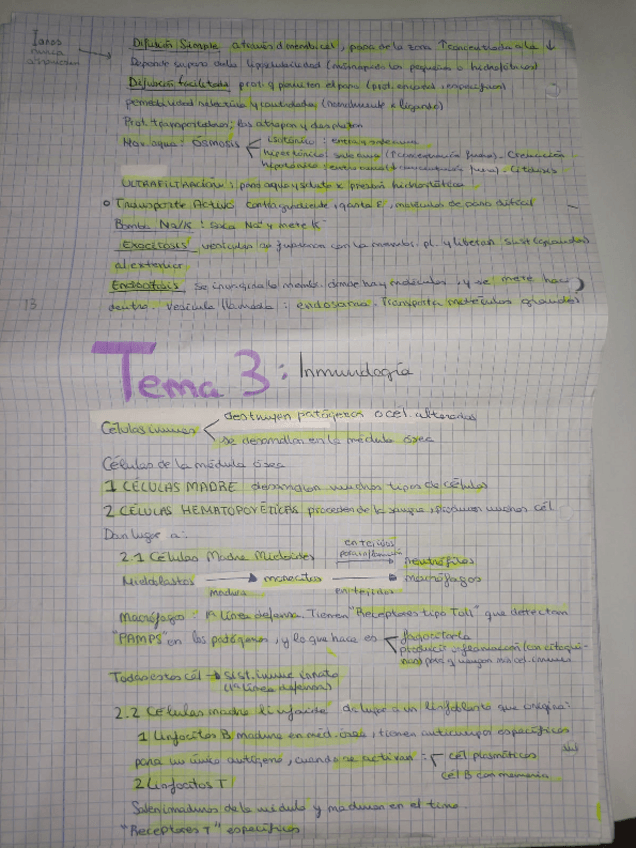 Difusión Simple a través d membr cel, pasa de la zona ↑ concentrada a la ↓
Depende su paso de la liposolubilidad (mismo pasa los pequeños o hidrofóbicos)
Difusión facilitada prot. q permiten el paso (prot. embebida, específicas)
permeabilidad selectiva y controlada (rendimiento x ligando)
Prot. transportadoras: las atrapan y desplazan
Mov. agua: ÓSMOSIS
isotónico: entra y sale
hipertónico: sale - Crenación
hipotónico: entra - Citólisis
ULTRAFILTRACIÓN: pasa agua y soluto x presión hidrostática
Transporte Activo contra gradiente, gasta E, moléculas de paso difícil
Bomba Na/K: saca Na⁺ y mete K⁺
Exocitosis vesículas se fusionan con la membr. pl. y liberan sust (grandes)
al exterior
Endocitosis se invagina la membr. donde hay moléculas, y se mete hacia
dentro. Vesícula llamada: endosoma. Transporta moléculas grandes
13
Tema 3: Inmunología
Células inmunes
destruyen patógenos o cél. alteradas
se desarrollan en la médula ósea
Células de la médula ósea
1 CÉLULAS MADRE desarrollan muchos tipos de células
2 CÉLULAS HEMATOPOYÉTICAS proceden de la sangre, producen muchos cél
Dan lugar a:
2.1 Células Madre Mieloides
en tejidos
neutrófilos
Mieloblastos → monocitos → macrófagos
madura en tejidos
Macrófagos: 1ª línea defensa. Tienen "Receptores tipo Toll" que detectan
"PAMPS" en los patógenos, y lo que hace es
fagocitarla
producir inflamación (con citoquinas) para q vengan más cél. inmunes
Todas estas cél → sist. inmune innato
(1ª línea defensa)
2.2 Células madre linfoide da lugar a un linfoblasto que origina:
1 Linfocitos B madura en méd. ósea, tienen anticuerpos específicos
para un único antígeno, cuando se activan:
cél plasmáticas
cél B con memoria
2 Linfocitos T
Salen inmaduros de la médula y maduran en el timo.
"Receptores T" específicos